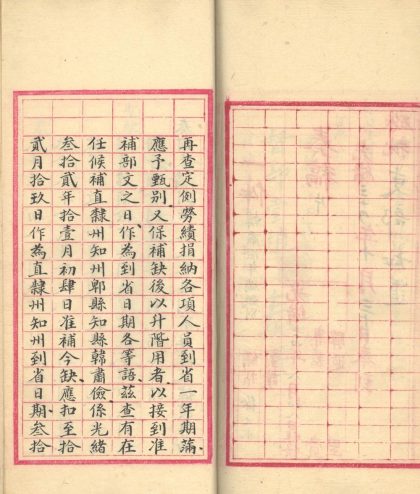 再查定例勞績捐納各項人員到省一年期滿
應予甄別又保補缺後以升階用者以接到准
補部文之日作為到省日期各等語茲查有在
任候補直隸州知州鄲縣知縣韓肅儉係光緒
叁拾貳年拾壹月初肆日准補今缺應扣至拾
貳月拾玖日作為直隸州知州到省日期叁拾